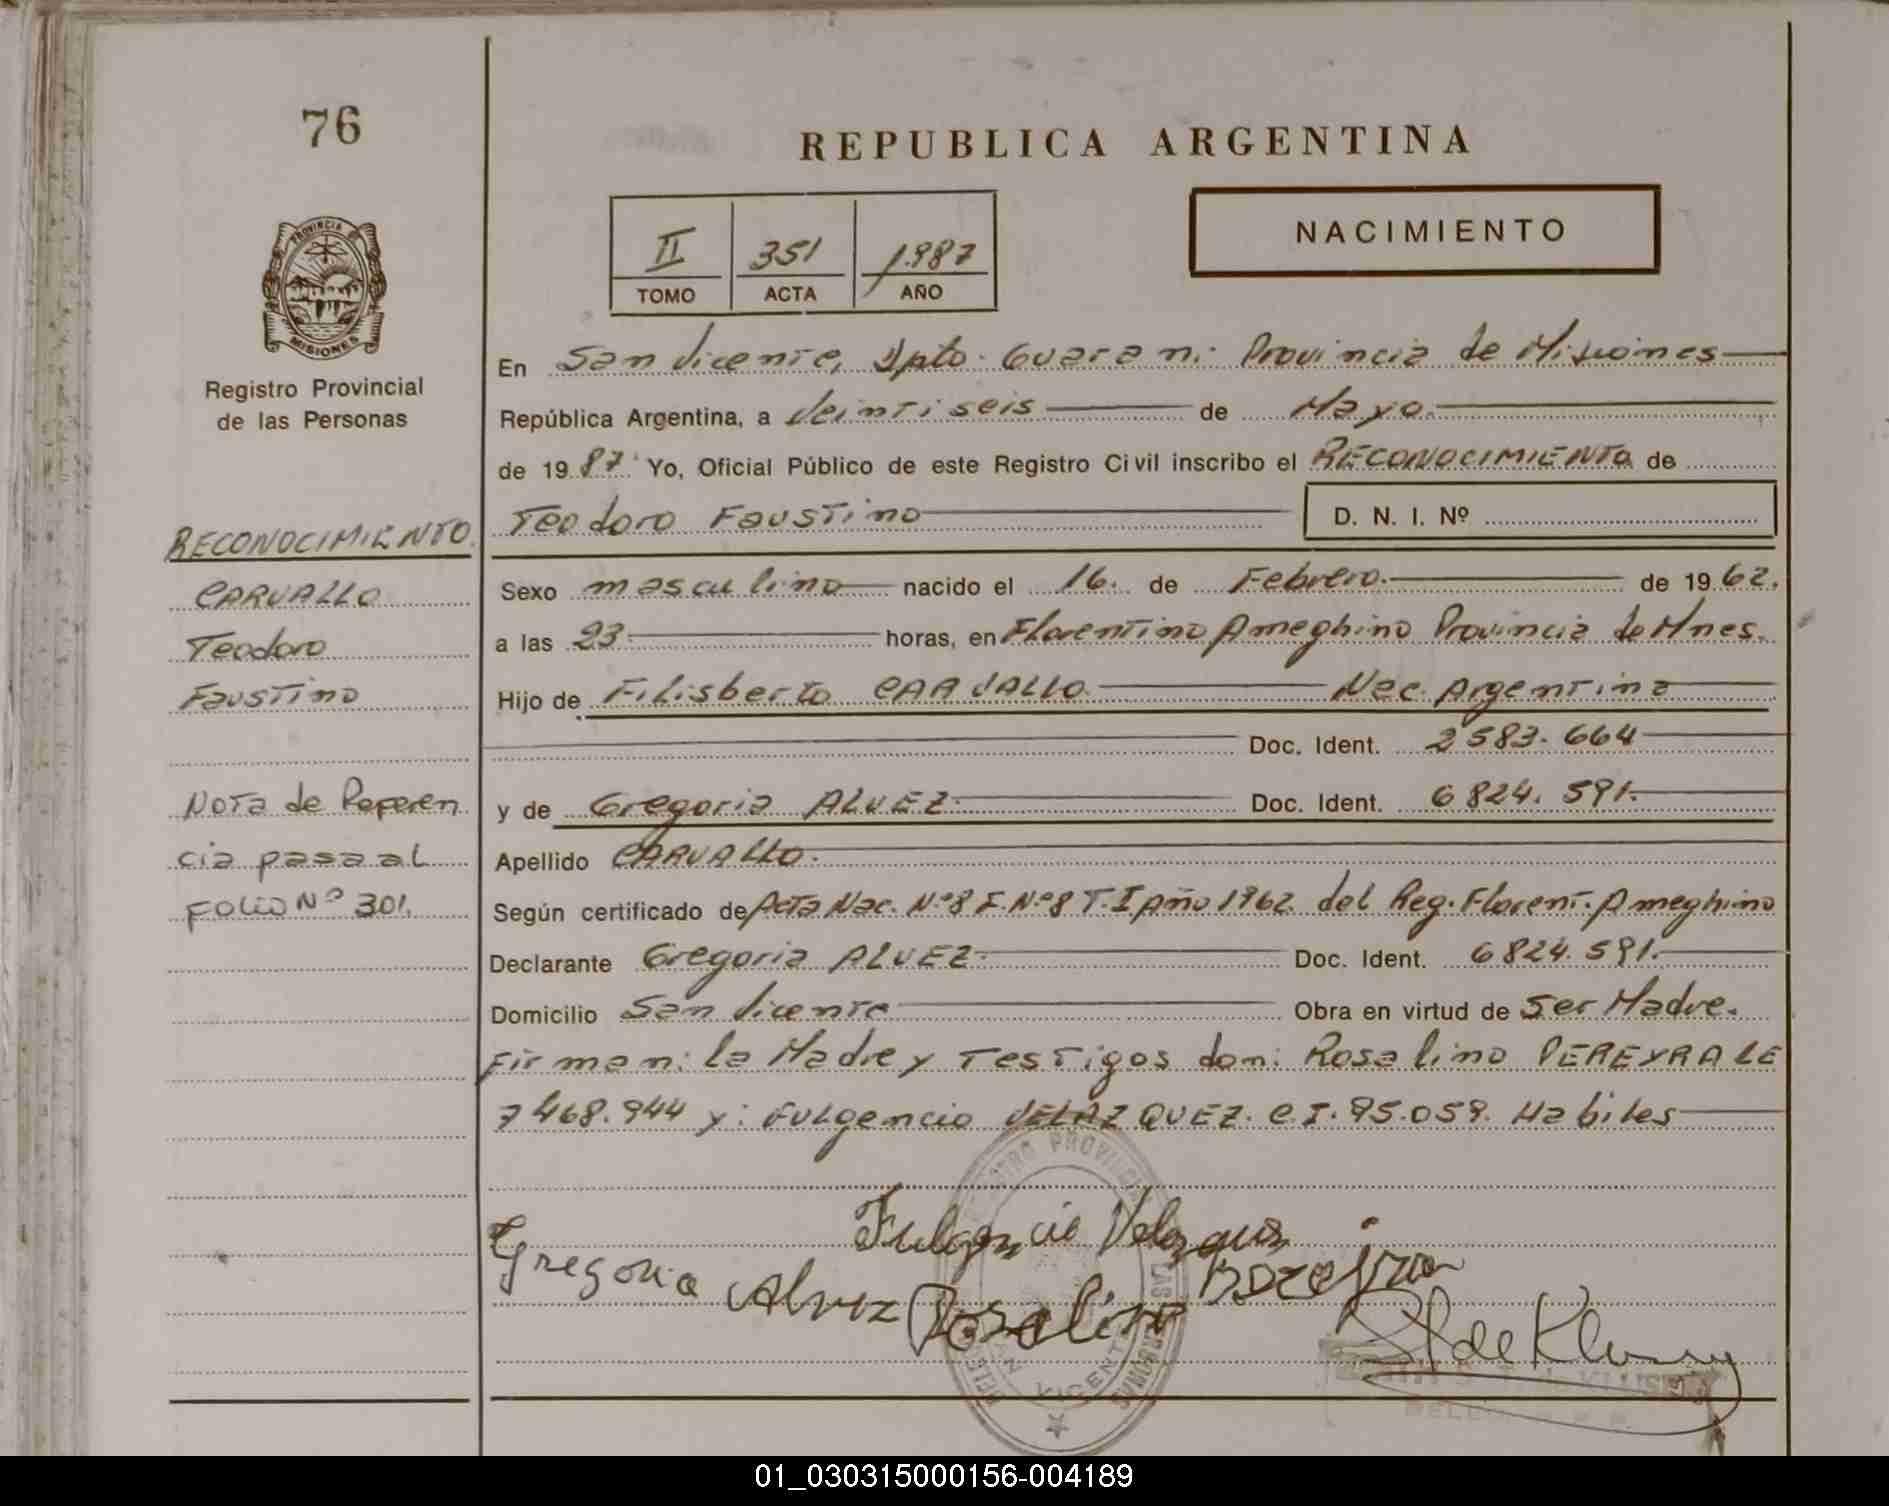 76
REPUBLICA ARGENTINA
II 351 1.987
TOMO ACTA AÑO
NACIMIENTO
PROVINCIA DE
MISIONES
Registro Provincial
de las Personas
En San Vicente, Dpto. Guarani. Provincia de Misiones
República Argentina, a Veintiseis de Mayo.
de 1987. Yo, Oficial Público de este Registro Civil inscribo el RECONOCIMIENTO de
Teodoro Faustino D. N. I. Nº
RECONOCIMIENTO
CARVALLO
Teodoro
Faustino
Nota de Referen
cia pasa al
FOLIO Nº 301.
Sexo masculino nacido el 16. de Febrero. de 1962.
a las 23 horas, en Florentino Ameghino Provincia de Mnes.
Hijo de Filisberto CARVALLO. Nac. Argentina
Doc. Ident. 2583.664
y de Gregoria ALVEZ. Doc. Ident. 6824.591.
Apellido CARVALLO.
Según certificado de Acta Nac. Nº8 F.Nº8 T.I Año 1962 del Reg. Florent. Ameghino
Declarante Gregoria ALVEZ. Doc. Ident. 6824.591.
Domicilio San Vicente Obra en virtud de Ser Madre.
Firman: la Madre y Testigos don: Rosalino PEREYRA LE
7468.944 y: FULgencio VELAZQUEZ. C.I. 95.059. Habiles
Fulgencio Velazquez
Gregoria Alvez Rosalino
SAN VICENTE
01_030315000156-004189